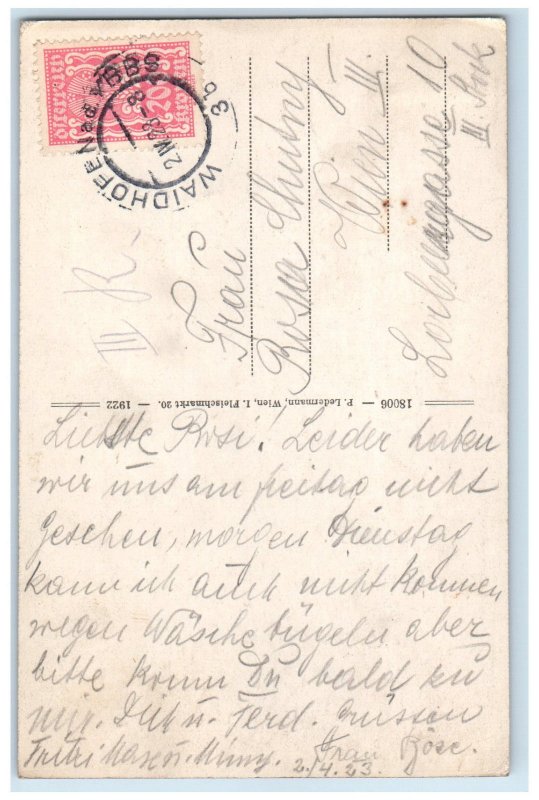 Österreich
20
WAIDHOFEN a.d. YBBS
2 IV 23 - 8
3b
III R.
Frau
Rosa Chudny
Wien III.
10
III. Stk
18006 — P. Ledermann, Wien, I. Fleischmarkt 20. — 1922
Liebste Rosi! Leider haben
wir uns am freitag nicht
gesehen, morgen Dienstag
kann ich auch nicht kommen
wegen Wäsche bügeln aber
bitte komm Du bald zu
mir. Dich u. Ferd. Grüssen
Fritzi Max u. Mimy. Frau Böse.
2./4.23.